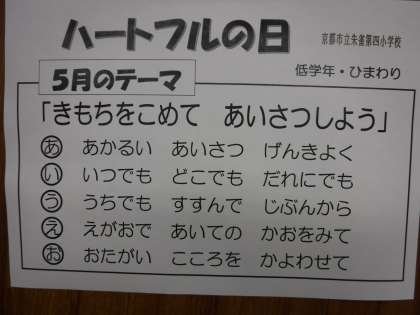 ハートフルの日
京都市立朱雀第四小学校
低学年・ひまわり
5月のテーマ
「きもちをこめて　あいさつしよう」
あ　あかるい　あいさつ　げんきよく
い　いつでも　どこでも　だれにでも
う　うちでも　すすんで　じぶんから
え　えがおで　あいての　かおをみて
お　おたがい　こころを　かよわせて